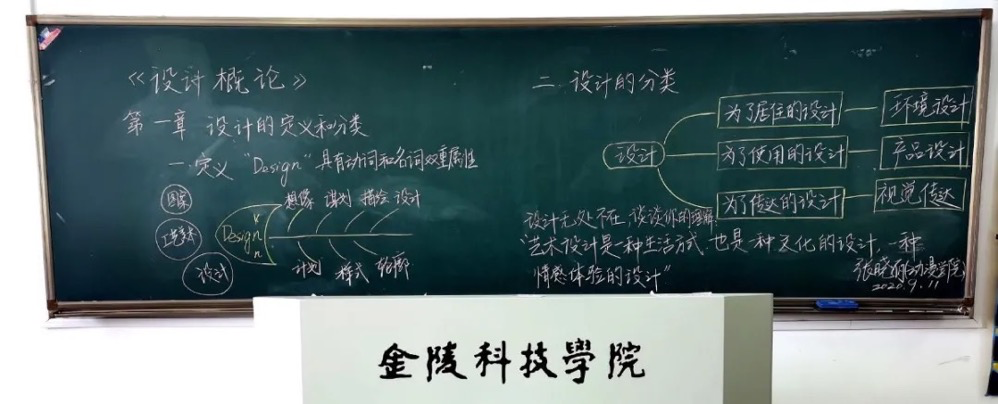 《设计概论》
第一章 设计的定义和分类
一.定义 "Design"具有动词和名词双重属性
图案
工艺美术
设计
Design
v
n
想像 谋划 描绘 设计
计划 样式 轮廓
二.设计的分类
设计
为了居住的设计 环境设计
为了使用的设计 产品设计
为了传达的设计 视觉传达
设计无处不在,谈谈你的理解:
"艺术设计是一种生活方式,也是一种文化的设计,一种
情感体验的设计"
动漫学院
2020.9.11
金陵科技學院